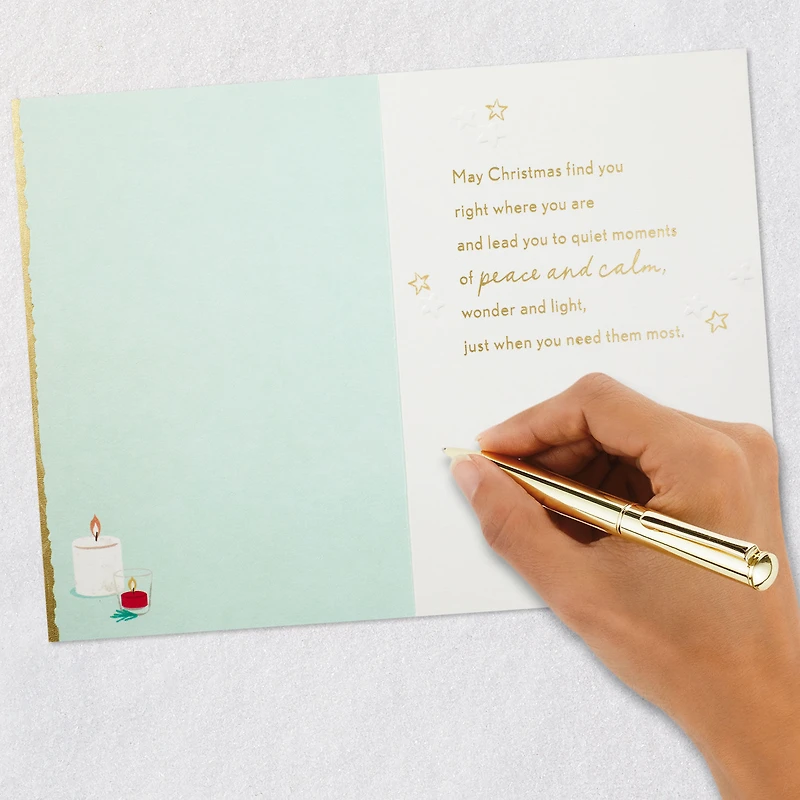 May Christmas find you
right where you are
and lead you to quiet moments
of peace and calm,
wonder and light,
just when you need them most.